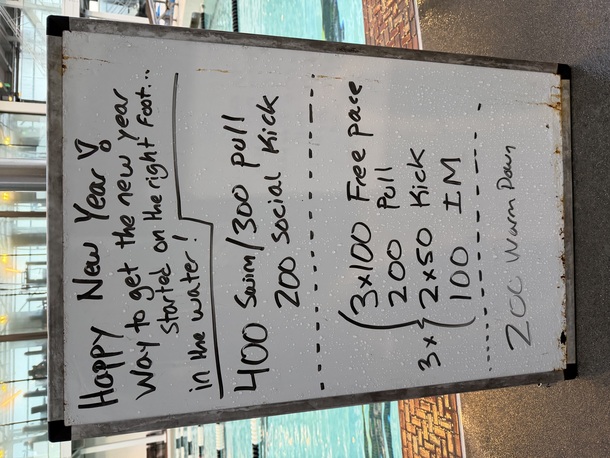 Happy New Year!
Way to get the new year
started on the right foot...
in the water!
400 Swim/300 pull
200 Social Kick
3x100 Free pace
200 Pull
3x { 2x50 Kick
100 IM
200 Warm Down